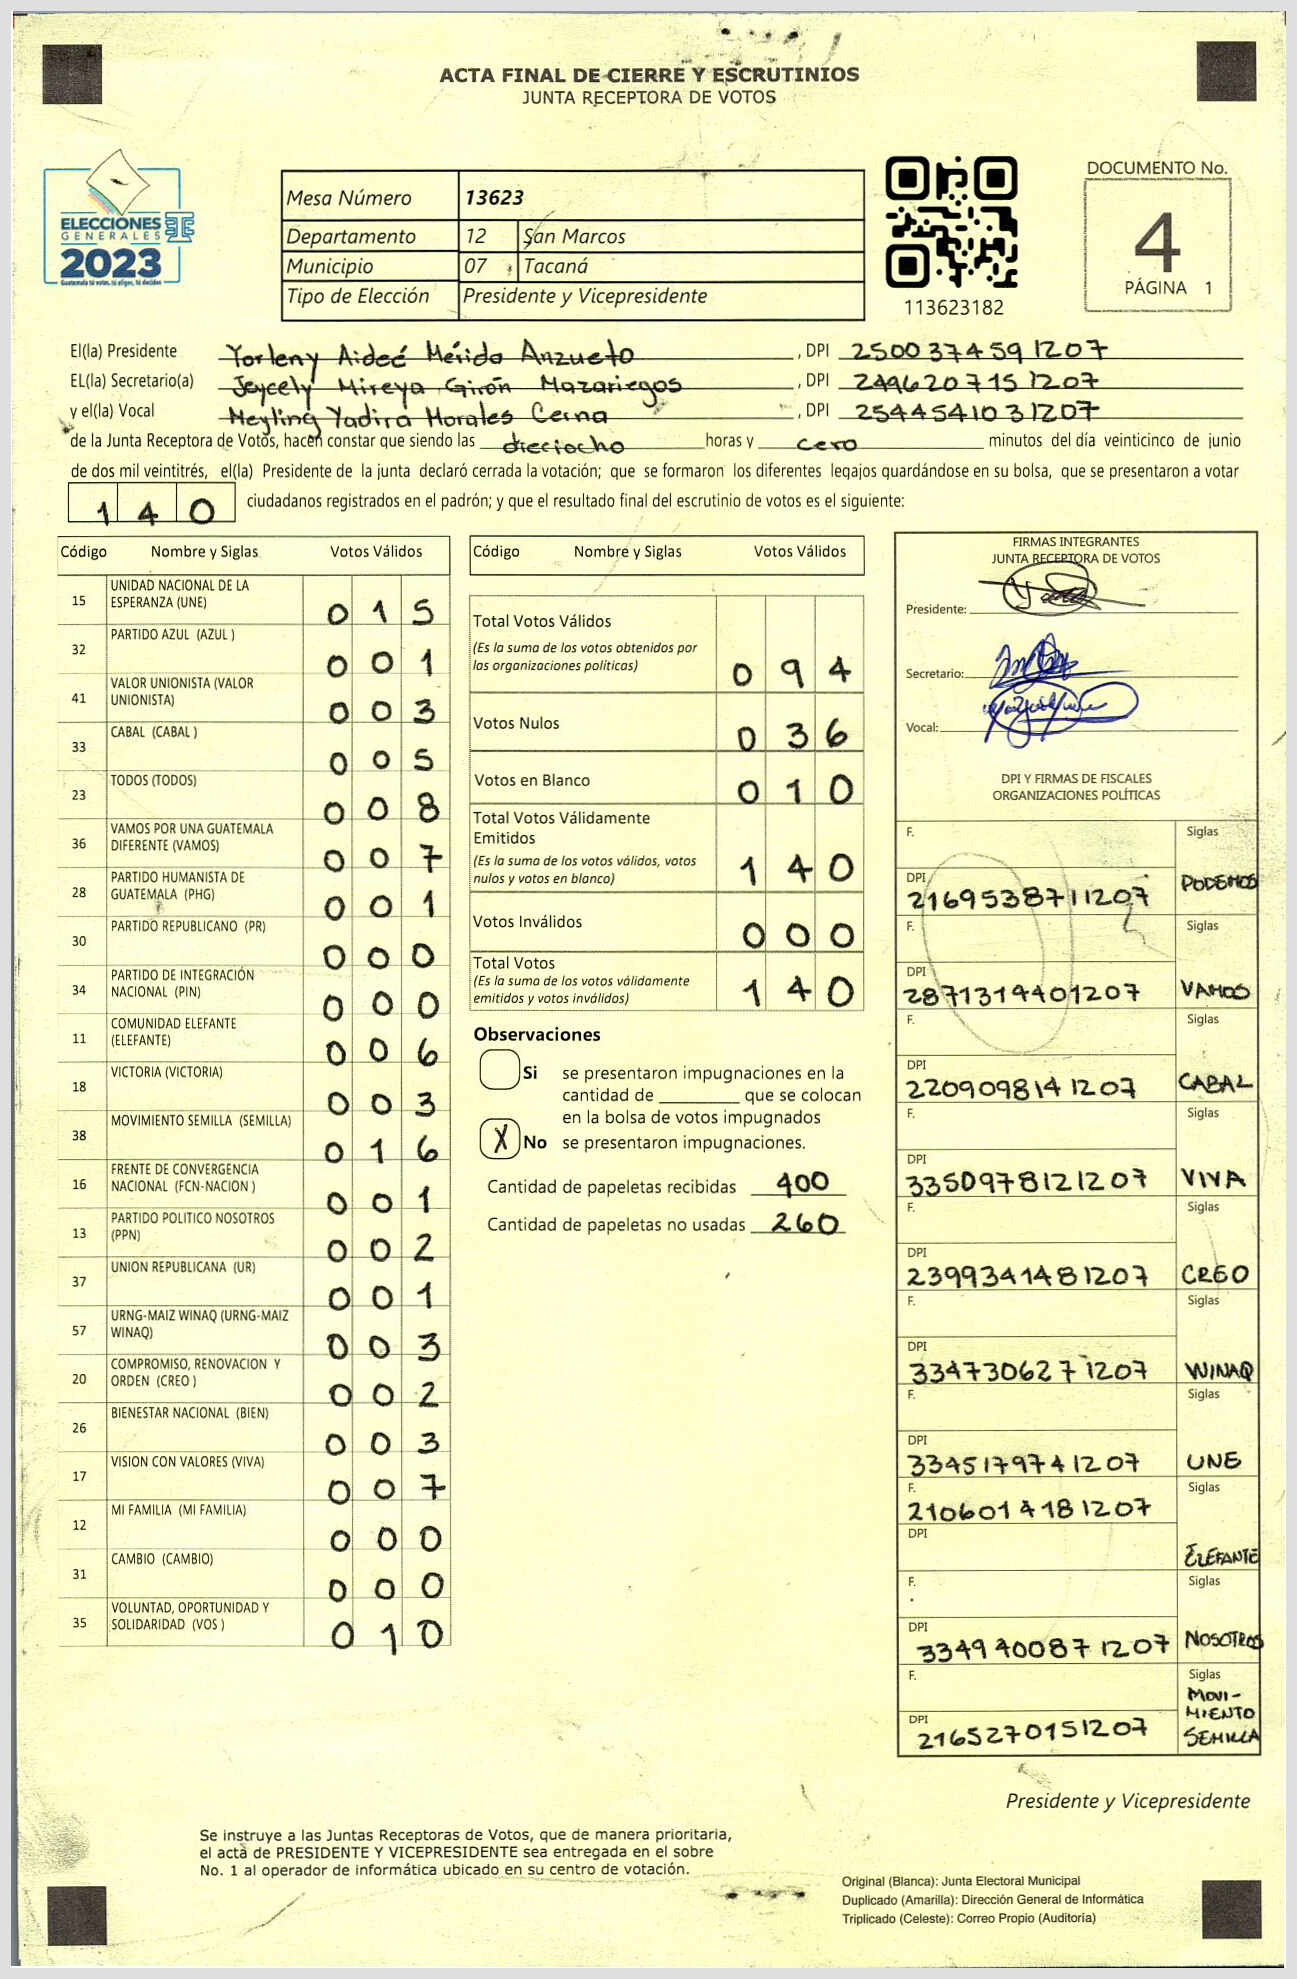 ACTA FINAL DE CIERRE Y ESCRUTINIOS
JUNTA RECEPTORA DE VOTOS
ELECCIONES
GENERALES
2023
Guatemala tú votas, tú eliges, tú decides
TSE
Mesa Número 13623
Departamento 12 San Marcos
Municipio 07 Tacaná
Tipo de Elección Presidente y Vicepresidente
113623182
DOCUMENTO No.
4
PÁGINA 1
El(la) Presidente Yorleny Aideé Mérida Anzueto , DPI 2500374591207
EL(la) Secretario(a) Jeycely Mireya Girón Mazariegos , DPI 2496207151207
y el(la) Vocal Meyling Yadira Morales Cerna , DPI 2544541031207
de la Junta Receptora de Votos, hacen constar que siendo las dieciocho horas y cero minutos del día veinticinco de junio
de dos mil veintitrés, el(la) Presidente de la junta declaró cerrada la votación; que se formaron los diferentes legajos guardándose en su bolsa, que se presentaron a votar
140 ciudadanos registrados en el padrón; y que el resultado final del escrutinio de votos es el siguiente:
Código Nombre y Siglas Votos Válidos
15 UNIDAD NACIONAL DE LA ESPERANZA (UNE) 015
32 PARTIDO AZUL (AZUL ) 001
41 VALOR UNIONISTA (VALOR UNIONISTA) 003
33 CABAL (CABAL ) 005
23 TODOS (TODOS) 008
36 VAMOS POR UNA GUATEMALA DIFERENTE (VAMOS) 007
28 PARTIDO HUMANISTA DE GUATEMALA (PHG) 001
30 PARTIDO REPUBLICANO (PR) 000
34 PARTIDO DE INTEGRACIÓN NACIONAL (PIN) 000
11 COMUNIDAD ELEFANTE (ELEFANTE) 006
18 VICTORIA (VICTORIA) 003
38 MOVIMIENTO SEMILLA (SEMILLA) 016
16 FRENTE DE CONVERGENCIA NACIONAL (FCN-NACION ) 001
13 PARTIDO POLITICO NOSOTROS (PPN) 002
37 UNION REPUBLICANA (UR) 001
57 URNG-MAIZ WINAQ (URNG-MAIZ WINAQ) 003
20 COMPROMISO, RENOVACION Y ORDEN (CREO ) 002
26 BIENESTAR NACIONAL (BIEN) 003
17 VISION CON VALORES (VIVA) 007
12 MI FAMILIA (MI FAMILIA) 000
31 CAMBIO (CAMBIO) 000
35 VOLUNTAD, OPORTUNIDAD Y SOLIDARIDAD (VOS ) 010
Código Nombre y Siglas Votos Válidos
Total Votos Válidos 094
(Es la suma de los votos obtenidos por
las organizaciones políticas)
Votos Nulos 036
Votos en Blanco 010
Total Votos Válidamente
Emitidos 140
(Es la suma de los votos válidos, votos
nulos y votos en blanco)
Votos Inválidos 000
Total Votos 140
(Es la suma de los votos válidamente
emitidos y votos inválidos)
Observaciones
Si se presentaron impugnaciones en la
cantidad de ________ que se colocan
en la bolsa de votos impugnados
X No se presentaron impugnaciones.
Cantidad de papeletas recibidas 400
Cantidad de papeletas no usadas 260
FIRMAS INTEGRANTES
JUNTA RECEPTORA DE VOTOS
Presidente:
Secretario:
Vocal:
DPI Y FIRMAS DE FISCALES
ORGANIZACIONES POLÍTICAS
F. Siglas
DPI 2169538711207 PODEMOS
F. Siglas
DPI 2871314401207 VAMOS
F. Siglas
DPI 2209098141207 CABAL
F. Siglas
DPI 3350978121207 VIVA
F. Siglas
DPI 2399341481207 CREO
F. Siglas
DPI 3347306271207 WINAQ
F. Siglas
DPI 3345179741207 UNE
F. 2106014181207 Siglas
DPI ELEFANTE
F. Siglas
DPI 3349400871207 NOSOTROS
F. Siglas
DPI 2165270151207 MOVI-
MIENTO
SEMILLA
Presidente y Vicepresidente
Se instruye a las Juntas Receptoras de Votos, que de manera prioritaria,
el acta de PRESIDENTE Y VICEPRESIDENTE sea entregada en el sobre
No. 1 al operador de informática ubicado en su centro de votación.
Original (Blanca): Junta Electoral Municipal
Duplicado (Amarilla): Dirección General de Informática
Triplicado (Celeste): Correo Propio (Auditoría)